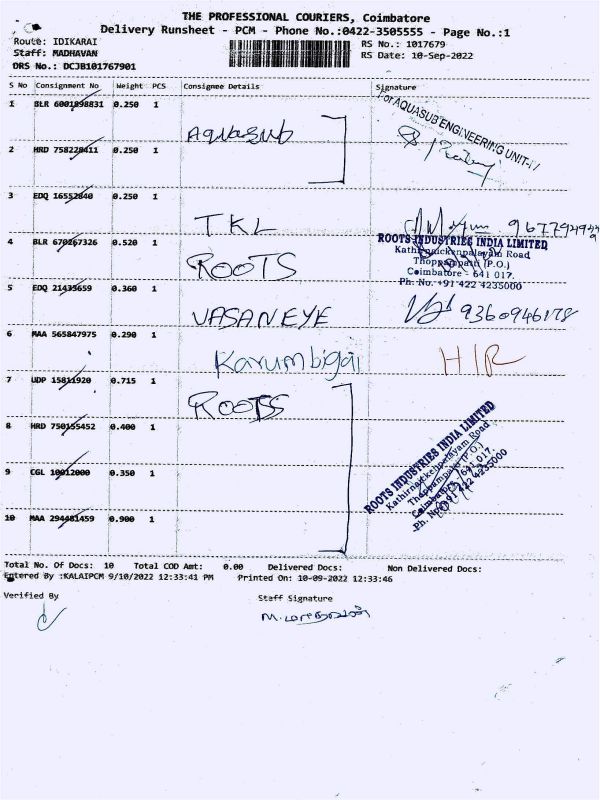 THE PROFESSIONAL COURIERS, Coimbatore
Delivery Runsheet - PCM - Phone No.:0422-3505555 - Page No.:1
Route: IDIKARAI
RS No.: 1017679
Staff: MADHAVAN
RS Date: 10-Sep-2022
DRS No.: DCJB101767901
S No Consignment No Weight PCS Consignee Details Signature
For AQUASUB ENGINEERING UNIT-
1 BLR 6001898831 0.250 1
Aquasub
2 HRD 758228411 0.250 1
3 EDQ 16552840 0.250 1
TKL
4 BLR 670267326 0.520 1
ROOTS
ROOTS INDUSTRIES INDIA LIMITED
Kathirnaickenpalayam Road
Thoppampatti (P.O.)
Coimbatore - 641 017.
Ph. No. +91 422 4235000
5 EDQ 21435659 0.360 1
VASAN EYE 9360946178
6 MAA 565847975 0.290 1
Karumbigai HIR
7 UDP 15811920 0.715 1
ROOTS
8 HRD 750155452 0.400 1
ROOTS INDUSTRIES INDIA LIMITED
Kathirnaickenpalayam Road
Thoppampatti (P.O.)
Coimbatore - 641 017.
Ph. No. +91 422 4235000
9 CGL 10012000 0.350 1
10 MAA 294481459 0.900 1
Total No. Of Docs: 10 Total COD Amt: 0.00 Delivered Docs: Non Delivered Docs:
Entered By :KALAIPCM 9/10/2022 12:33:41 PM Printed On: 10-09-2022 12:33:46
Verified By Staff Signature
M. மாதவன்